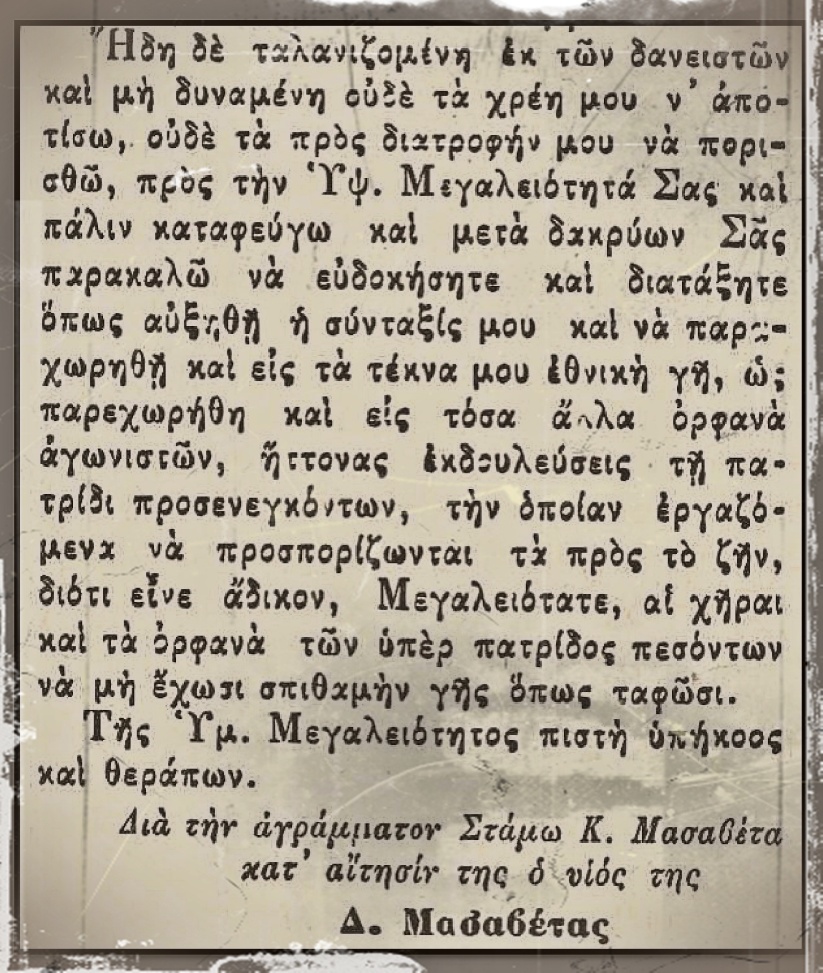 Ἤδη δὲ ταλανιζομένη ἐκ τῶν δανειστῶν
καὶ μὴ δυναμένη οὐδὲ τὰ χρέη μου ν’ ἀπο-
τίσω, οὐδὲ τὰ πρὸς διατροφήν μου νὰ πορι-
σθῶ, πρὸς τὴν Ὑψ. Μεγαλειότητά Σας καὶ
πάλιν καταφεύγω καὶ μετὰ δακρύων Σᾶς
παρακαλῶ νὰ εὐδοκήσητε καὶ διατάξητε
ὅπως αὐξηθῇ ἡ σύνταξίς μου καὶ νὰ παρα-
χωρηθῇ καὶ εἰς τὰ τέκνα μου ἐθνικὴ γῆ, ὡς
παρεχωρήθη καὶ εἰς τόσα ἄλλα ὀρφανὰ
ἀγωνιστῶν, ἥττονας ἐκδουλεύσεις τῇ πα-
τρίδι προσενεγκόντων, τὴν ὁποίαν ἐργαζό-
μενα νὰ προσπορίζωνται τὰ πρὸς τὸ ζῆν,
διότι εἶνε ἄδικον, Μεγαλειότατε, αἱ χῆραι
καὶ τὰ ὀρφανὰ τῶν ὑπὲρ πατρίδος πεσόντων
νὰ μὴ ἔχωσι σπιθαμὴν γῆς ὅπως ταφῶσι.
Τῆς Ὑμ. Μεγαλειότητος πιστὴ ὑπήκοος
καὶ θεράπων.
Διὰ τὴν ἀγράμματον Στάμω Κ. Μασαβέτα
κατ’ αἴτησίν της ὁ υἱός της
Δ. Μασαβέτας